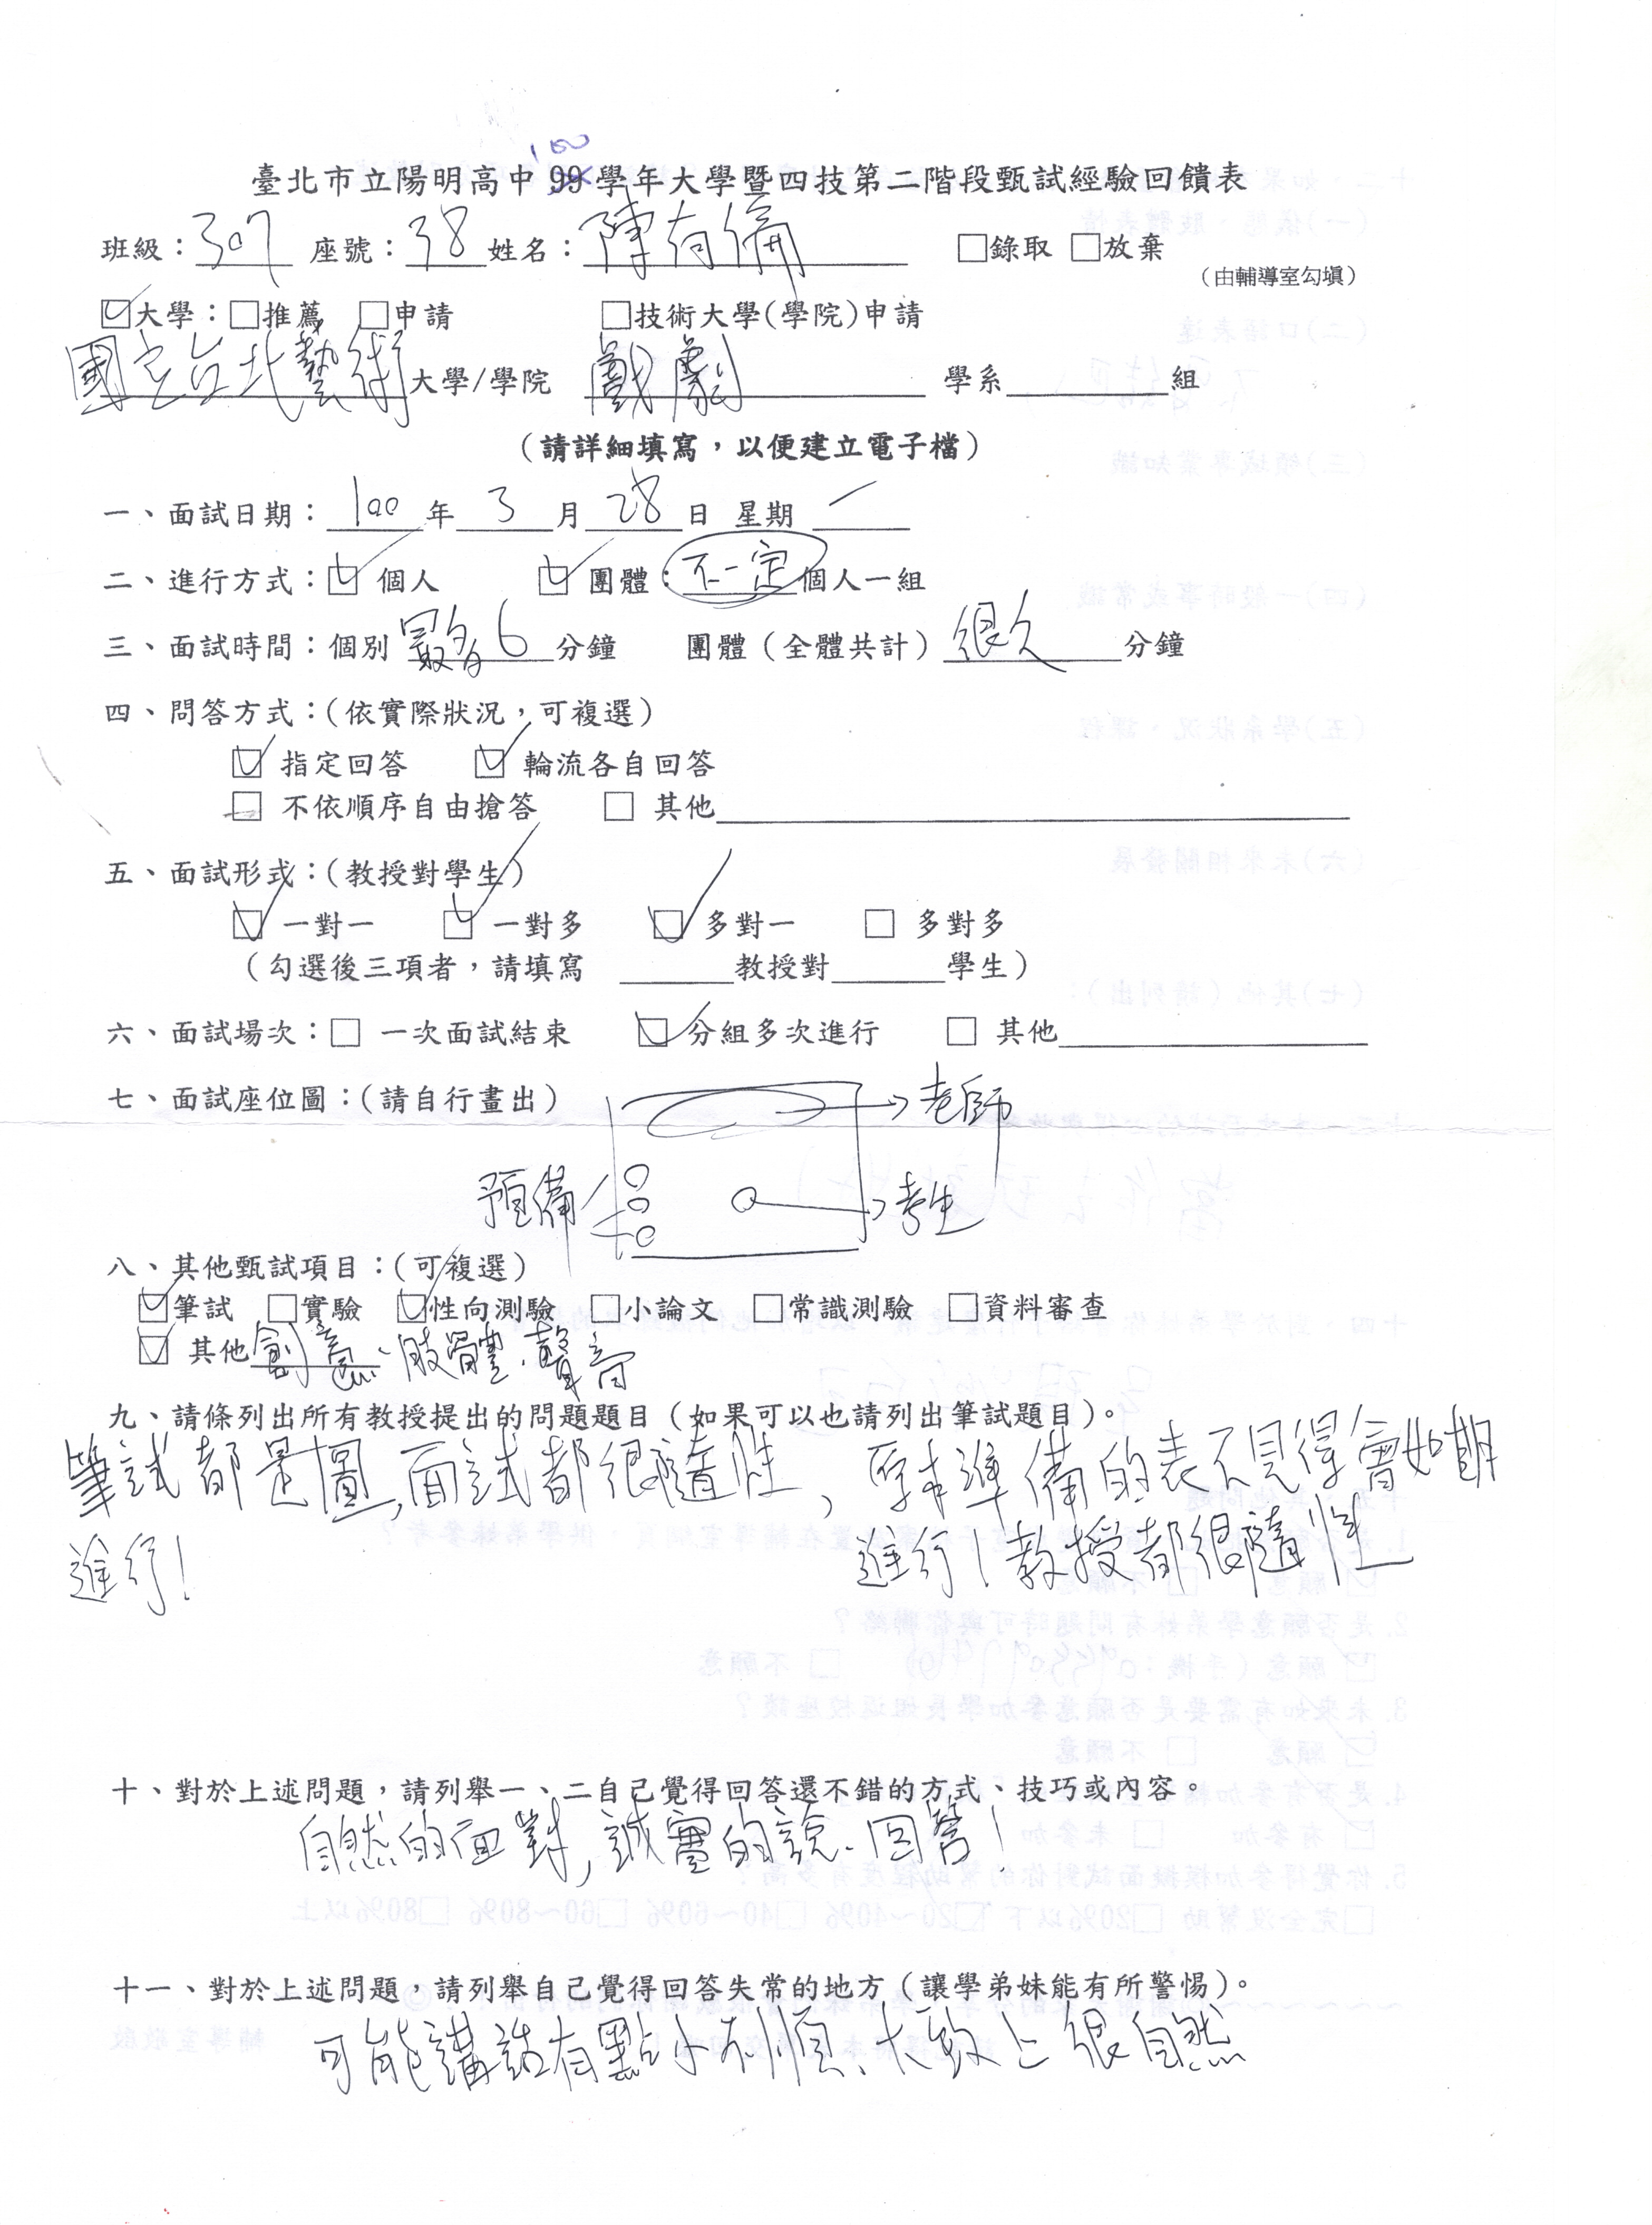 100
臺北市立陽明高中 99 學年大學暨四技第二階段甄試經驗回饋表
班級：307 座號：38 姓名：陳有備 □錄取 □放棄
（由輔導室勾填）
☑大學：□推薦 □申請 □技術大學(學院)申請
國立台北藝術大學/學院 戲劇 學系 組
（請詳細填寫，以便建立電子檔）
一、面試日期：100 年 3 月 28 日 星期 一
二、進行方式：☑ 個人 ☑ 團體：不一定 個人一組
三、面試時間：個別 最多6 分鐘 團體（全體共計）很久 分鐘
四、問答方式：(依實際狀況，可複選)
☑ 指定回答 ☑ 輪流各自回答
□ 不依順序自由搶答 □ 其他
五、面試形式：(教授對學生)
☑ 一對一 ☑ 一對多 ☑ 多對一 □ 多對多
（勾選後三項者，請填寫 教授對 學生）
六、面試場次：□ 一次面試結束 ☑ 分組多次進行 □ 其他
七、面試座位圖：(請自行畫出)
老師
預備
考生
八、其他甄試項目：(可複選)
☑筆試 □實驗 ☑性向測驗 □小論文 □常識測驗 □資料審查
☑ 其他 創意、肢體、聲音
九、請條列出所有教授提出的問題題目（如果可以也請列出筆試題目）。
筆試都是圖,面試都很隨性,原本準備的表不見得會如期
進行! 進行!教授都很隨性
十、對於上述問題，請列舉一、二自己覺得回答還不錯的方式、技巧或內容。
自然的面對,誠實的說、回答!
十一、對於上述問題，請列舉自己覺得回答失常的地方（讓學弟妹能有所警惕）。
可能講話有點小不順、大致上很自然